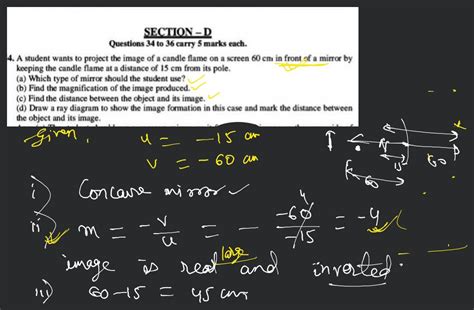 SECTION – D
Questions 34 to 36 carry 5 marks each.
4. A student wants to project the image of a candle flame on a screen 60 cm in front of a mirror by
keeping the candle flame at a distance of 15 cm from its pole.
(a) Which type of mirror should the student use?
(b) Find the magnification of the image produced.
(c) Find the distance between the object and its image.
(d) Draw a ray diagram to show the image formation in this case and mark the distance between
the object and its image.
Given,
u = -15 cm
v = -60 cm
i) Concave mirror
ii) m = -v/u = - -60/-15 = -4
image is real large and inverted.
iii) 60-15 = 45 cm
15
60
60